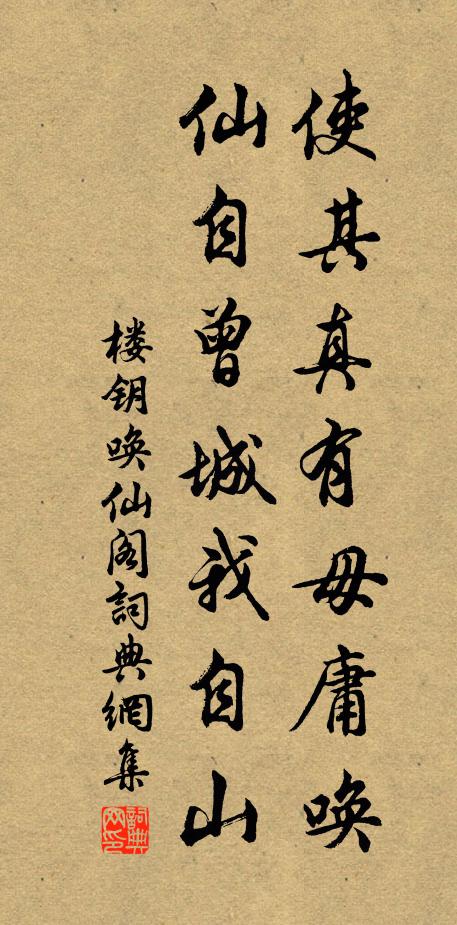 使其真有毋庸唤
仙自曾城我自山
楼钥唤仙阁詞典網集
詞典网印